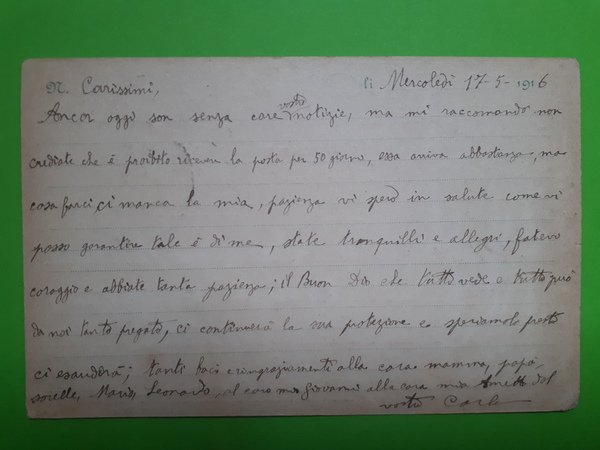 N. Carissimi, li Mercoledì 17-5-1916
Ancor oggi son senza care vostre notizie, ma mi raccomando non
crediate che è proibito ricevere la posta per 50 giorni, essa arriva abbastanza, ma
cosa farci, ci manca la mia, pazienza vi spero in salute come vi
posso garantire tale è di me, state tranquilli e allegri, fatevi
coraggio e abbiate tanta pazienza; il Buon Dio che tutto vede e tutto può
da noi tanto pregato, ci continuerà la sua protezione e speriamolo presto
ci esaudirà; tanti baci e ringraziamenti alla cara mamma, papà,
sorelle, Mario, Leonardo, al caro mio Giovanni alla cara mia dal
vostro Carlo